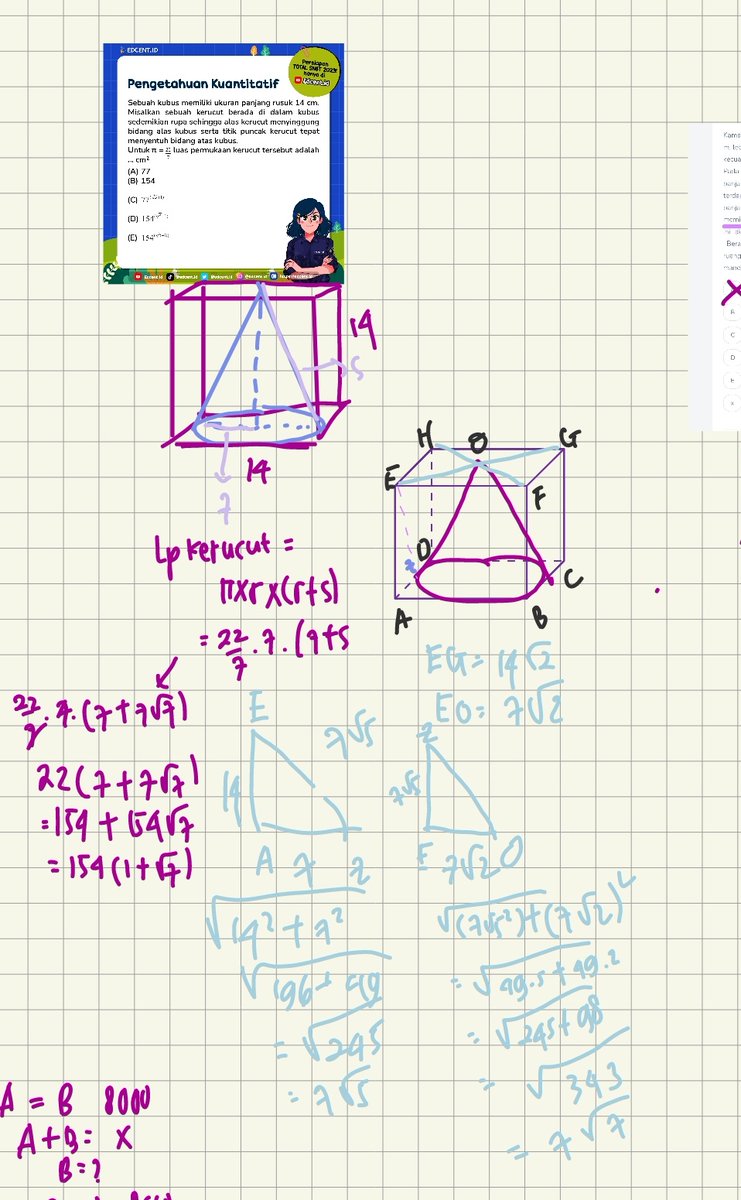 EDCENT.ID
Persiapan
TOTAL SNBT 2023!!
hanya di
Edcent.id
Pengetahuan Kuantitatif
Sebuah kubus memiliki ukuran panjang rusuk 14 cm.
Misalkan sebuah kerucut berada di dalam kubus
sedemikian rupa sehingga alas kerucut menyinggung
bidang alas kubus serta titik puncak kerucut tepat
menyentuh bidang atas kubus.
Untuk π = 22/7 luas permukaan kerucut tersebut adalah
... cm²
(A) 77
(B) 154
(C)
(D)
(E)
14
s
14
7
H O G
E F
D
z C
A B
Lp kerucut =
π×r×(r+s)
= 22/7 . 7 . (7+s
22/7 . 7. (7+7√7)
22(7+7√7)
=154 + 154√7
= 154(1+√7)
EG = 14√2
EO = 7√2
E
7√5
14
A 7 z
√14² + 7²
√196 + 49
= √245
= 7√5
z
7√5
E 7√2 O
√(7√5²)+(7√2)²
= √49.5 + 49.2
= √245+98
= √343
= 7√7
A = B 8000
A+B = x
B = ?